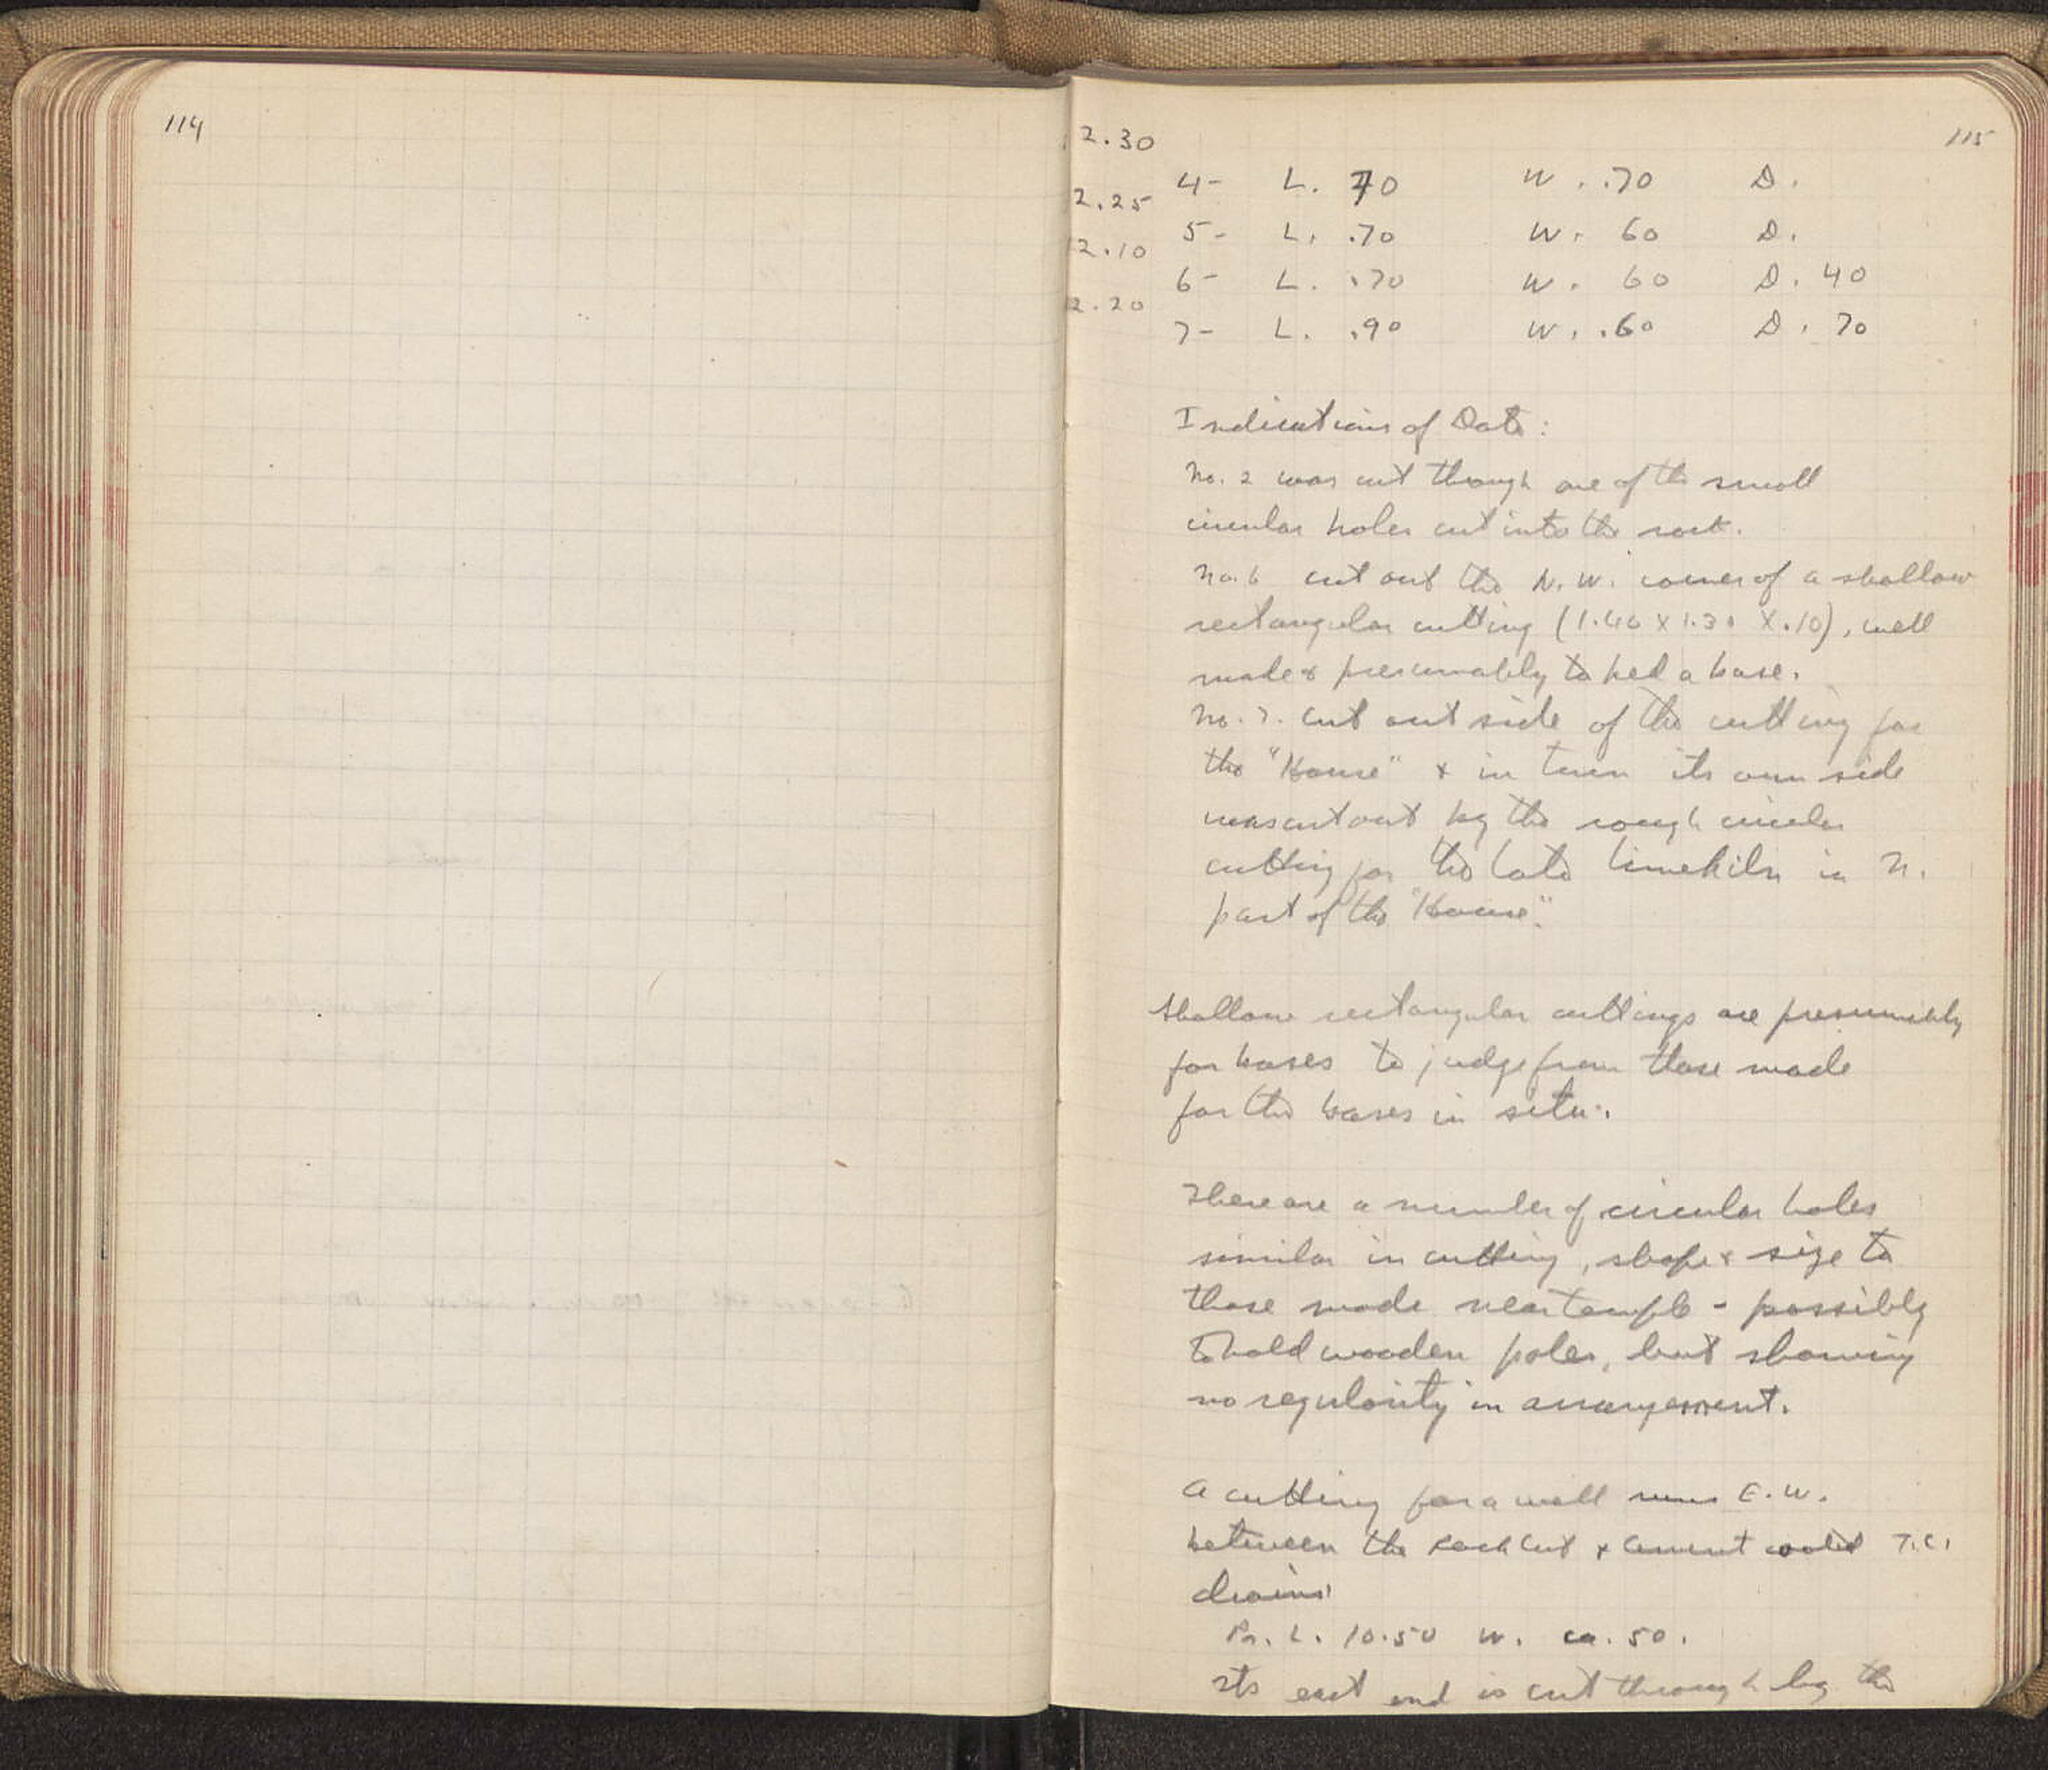 114
115
2.30
4- L. 70 W. .70 D.
2.25
5- L. .70 W. 60 D.
2.10
6- L. .70 W. 60 D. 40
2.20
7- L. .90 W. .60 D. 70
Indications of Date:
No. 2 was cut through one of the small
circular holes cut into the rock.
No. 6 cut out the N.W. corner of a shallow
rectangular cutting (1.40 x 1.30 x .10), well
made & presumably to bed a base.
No. 7. cut out side of the cutting for
the "House" & in turn its own side
was cut out by the rough circular
cutting for the late limekiln in N.
part of the "House".
Shallow rectangular cuttings are presumably
for bases to judge from those made
for the bases in situ.
There are a number of circular holes
similar in cutting, shape & size to
those made near temple - possibly
to hold wooden poles, but showing
no regularity in arrangement.
A cutting for a wall runs E.W.
between the rock cut & cement T.C.
drains
Pr. L. 10.50 W. ca. 50.
Its east end is cut through by the